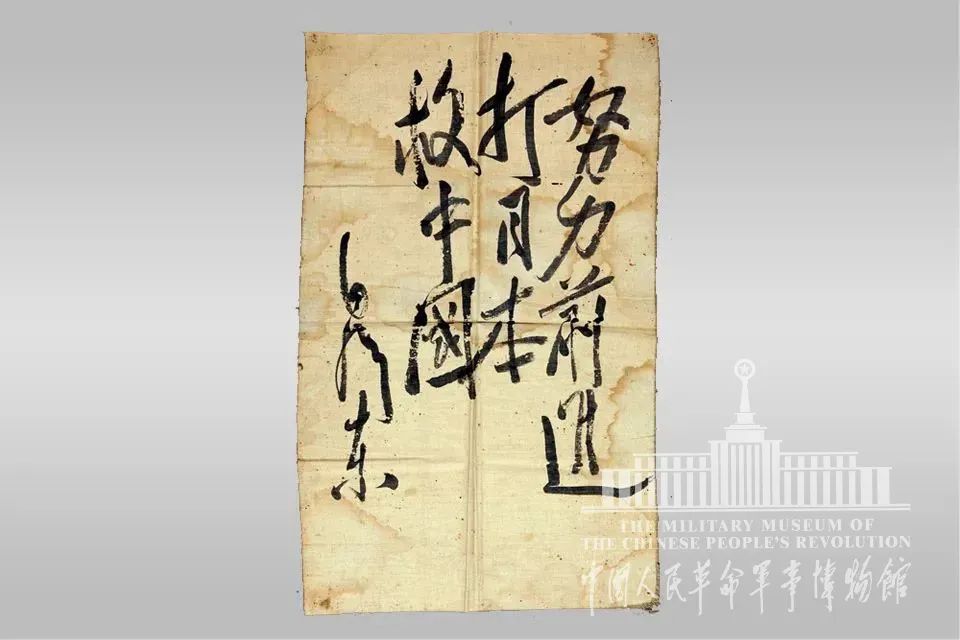 努力前進
打日本
救中國
毛澤東
THE MILITARY MUSEUM OF
THE CHINESE PEOPLE'S REVOLUTION
中国人民革命军事博物館